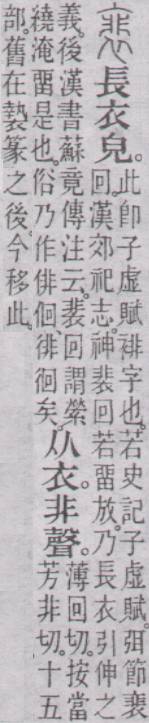 裵長衣皃。
此卽子虛賦裶字也。若史記子虛賦。弭節裵
回。漢郊祀志。神裵回若畱放。乃長衣引伸之
義。後漢書蘇竟傳注云。裵回謂縈
繞淹畱是也。俗乃作俳佪徘徊矣。
从衣。非聲。
薄回切。按當
芳非切。十五
部。舊在褺篆之後。今移此。